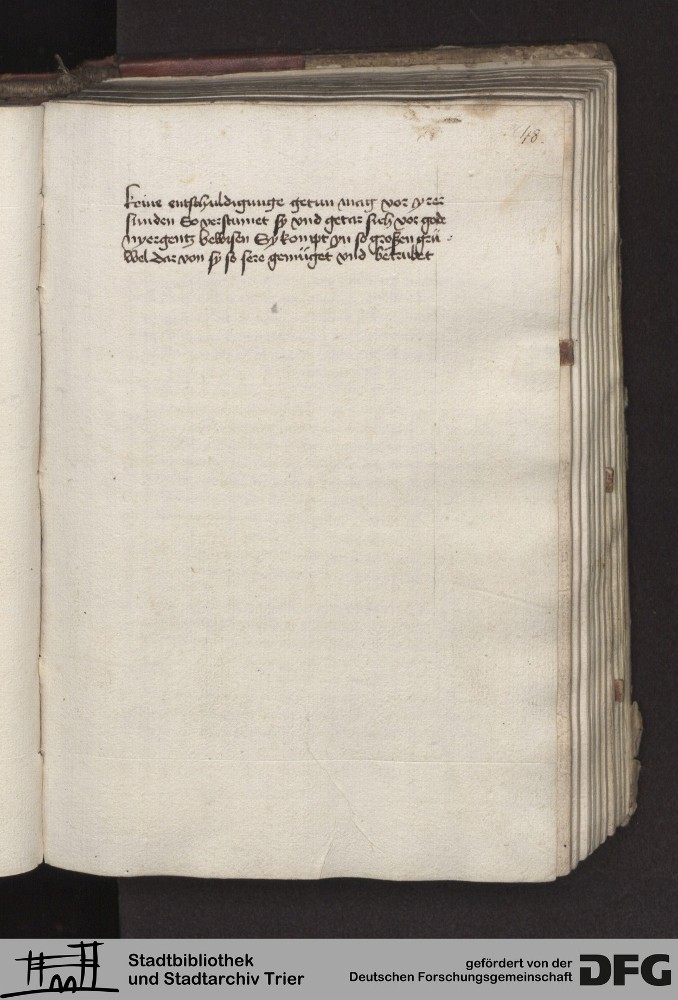 48.
keine entschuldigunge getun mag vor yrer
sunden So verstumet sy vnd getar sich vor gode
nyergentz bewisen Sy kompt yn so großen grü
wel dar von sy so sere gemüget vnd betrubet
Stadtbibliothek
und Stadtarchiv Trier
gefördert von der
Deutschen Forschungsgemeinschaft
DFG